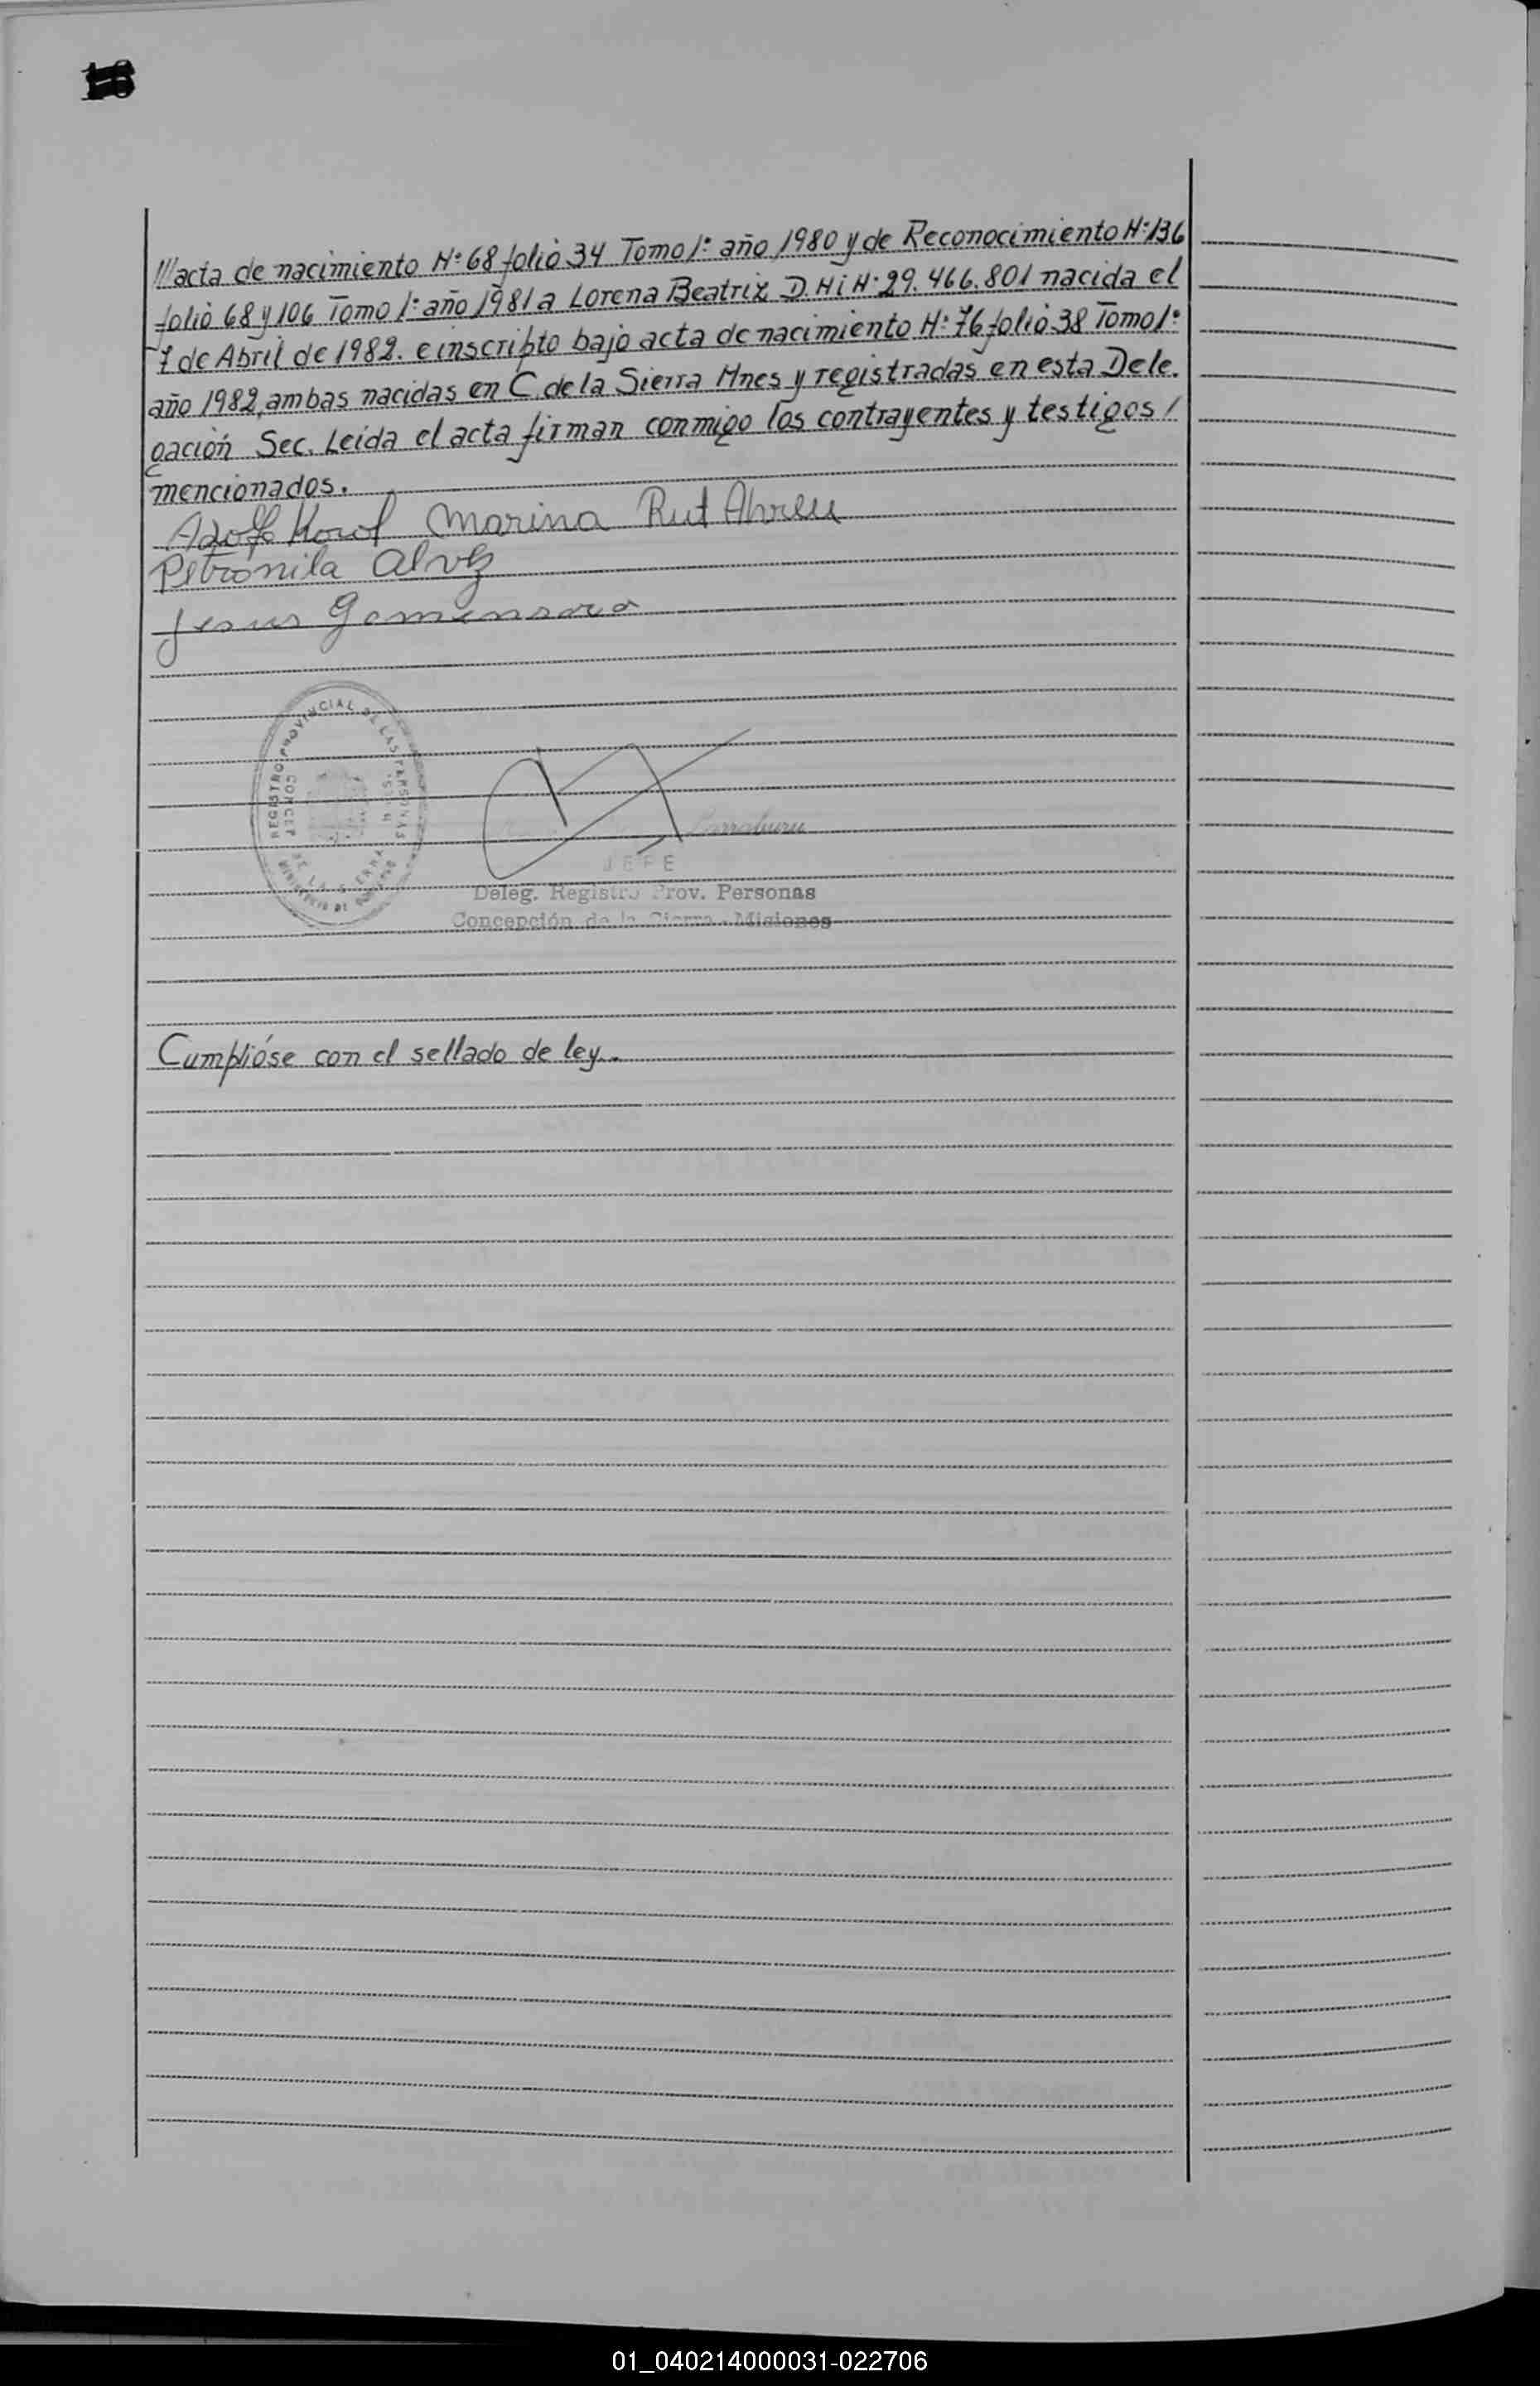 ///acta de nacimiento Nº 68 folio 34 Tomo 1º año 1980 y de Reconocimiento Nº 136
folio 68 y 106 Tomo 1º año 1981 a Lorena Beatriz D.N.i Nº 29.466.801 nacida el
7 de Abril de 1982. e inscripto bajo acta de nacimiento Nº 76 folio 38 Tomo 1º
año 1982, ambas nacidas en C. de la Sierra Mnes y registradas en esta Dele.
gación Sec. Leida el acta firman conmigo los contrayentes y testigos /
mencionados.
Adolfo Korol Marina Rut Abreu
Petronila Alvez
Jesus Gomensoro
REGISTRO PROVINCIAL DE LAS PERSONAS
CONCEP DE LA SIERRA
MINISTERIO DE GOBIERNO
Larraburu
JEFE
Deleg. Registro Prov. Personas
Concepción de la Sierra - Misiones
Cumplióse con el sellado de ley.
01_040214000031-022706